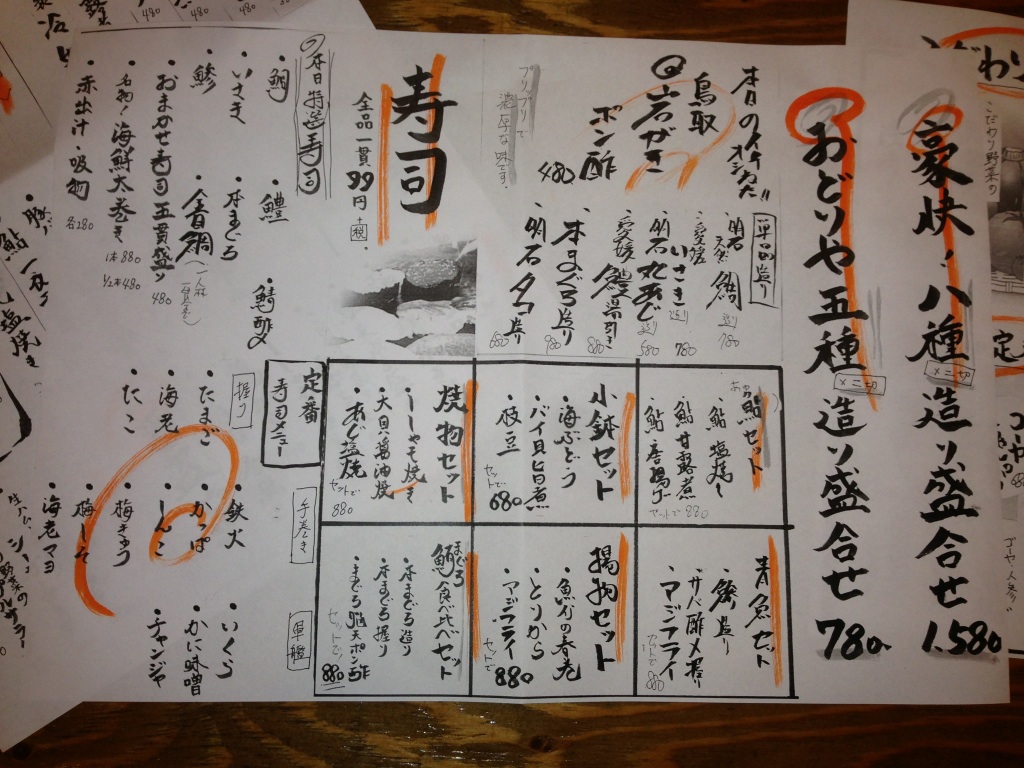 豪快!八種造り盛合せ
1.580
メニ切
おどりや五種造り盛合せ
780.
メニ切
本日のイチオシ
鳥取
岩がき
ポン酢
480
プリプリで
濃厚な味です
単品造り
・明石天然鯛造り 780
・愛媛いさき造り 780
・明石丸あじ造り 580
・愛媛鱧湯引き 880
・本まぐろ造り 980
・明石タコ造り 680
寿司
全品一貫99円+税
本日特選寿司
・鯛
・鱧
・鯖酢〆
・いさき
・本まぐろ
・鯵
・金目鯛
・おまかせ寿司五貫盛り 480
・名物!海鮮太巻き
1本880
1/2本480
・赤出汁・吸物 各280
鮎セット
・鮎塩焼き
・鮎甘露煮
・鮎唐揚げ
セットで 880
小鉢セット
・海ぶどう
・バイ貝旨煮
・枝豆
セットで 680
焼物セット
・ししゃも焼き
・大貝醤油焼
・あじ塩焼
セットで 880
青魚セット
・鯵造り
・サバ酢〆握り
・アジフライ
セットで 880
揚物セット
・魚介の春巻
・とりから
・アジフライ
セットで 880
まぐろ
鮪食べ比べセット
・本まぐろ造り
・本まぐろ握り
・まぐろ脳天ポン酢
セットで 880
定番
寿司メニュー
握り
・たまご
・海老
・たこ
手巻き
・鉄火
・かっぱ
・しんこ
・梅きゅう
・梅しそ
・海老マヨ
軍艦
・いくら
・かに味噌
・チャンジャ
こだわり野菜の
塩焼き